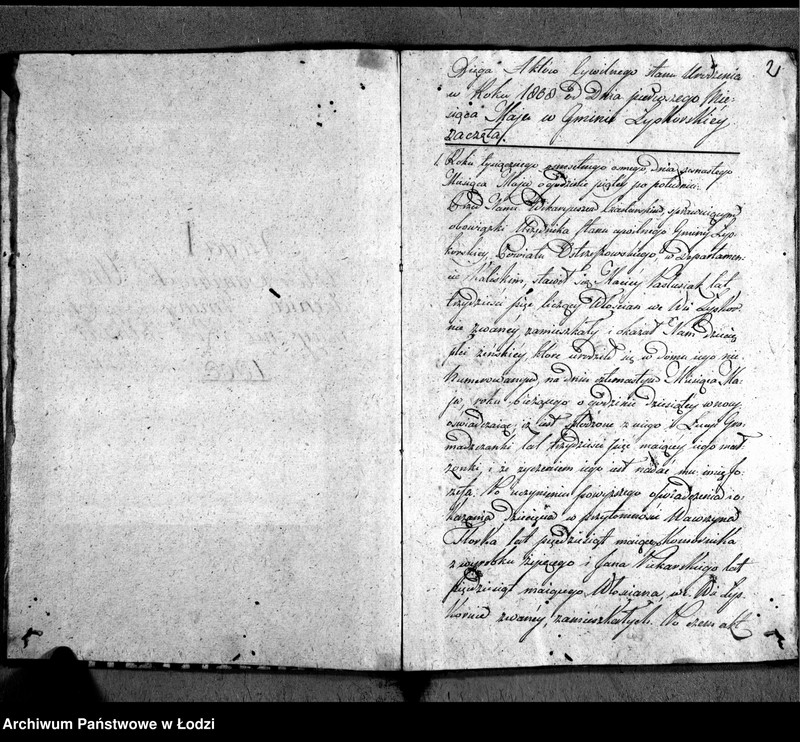 2
Xięga Aktów Cywilnego stanu Urodzenia
w Roku 1808 od Dnia pierwszego Mie-
siąca Maja w Gminie Lyskorskiey
zaczęta.
1. Roku tysiącznego osmsetnego osmego, dnia
Miesiąca Maja o godzinie piątey po południu.
Przed Nami Wikaryuszem sprawuiącym
obowiązki Urzędnika stanu cywilnego Gminy Lys-
korskiey, Powiatu Ostrzeszowskiego, w Departamen-
cie Kaliskim, stawił się Maciey Pasiusiak lat
trzydzieści pięć liczący Włościan we Wsi Lyskor-
nie zwaney zamieszkały i okazał Nam Dziecię
płci żeńskiey które urodziło się w domu iego nie-
numerowanym, na dniu Miesiąca Ma-
ja, roku bieżącego o godzinie dziesiątey w nocy,
oświadczaiąc, iż iest spłodzone z niego i Łucyi Gro-
madzanki lat trzydzieści pięć maiącey iego mał-
żonki, i że życzeniem iego iest nadać mu imię Jo-
zefa. Po uczynieniu powyższego oświadczenia i o-
kazania Dziecięcia w przytomności Wawrzyna
Florka lat pięćdziesiąt maiącego komornika
z wyrobku żyjącego i Jana Piekarskiego lat
pięćdziesiąt maiącego, Włosciana, we Wsi Lys-
kornie zwaney, zamieszkałych. Po czem akt
Archiwum Państwowe w Łodzi